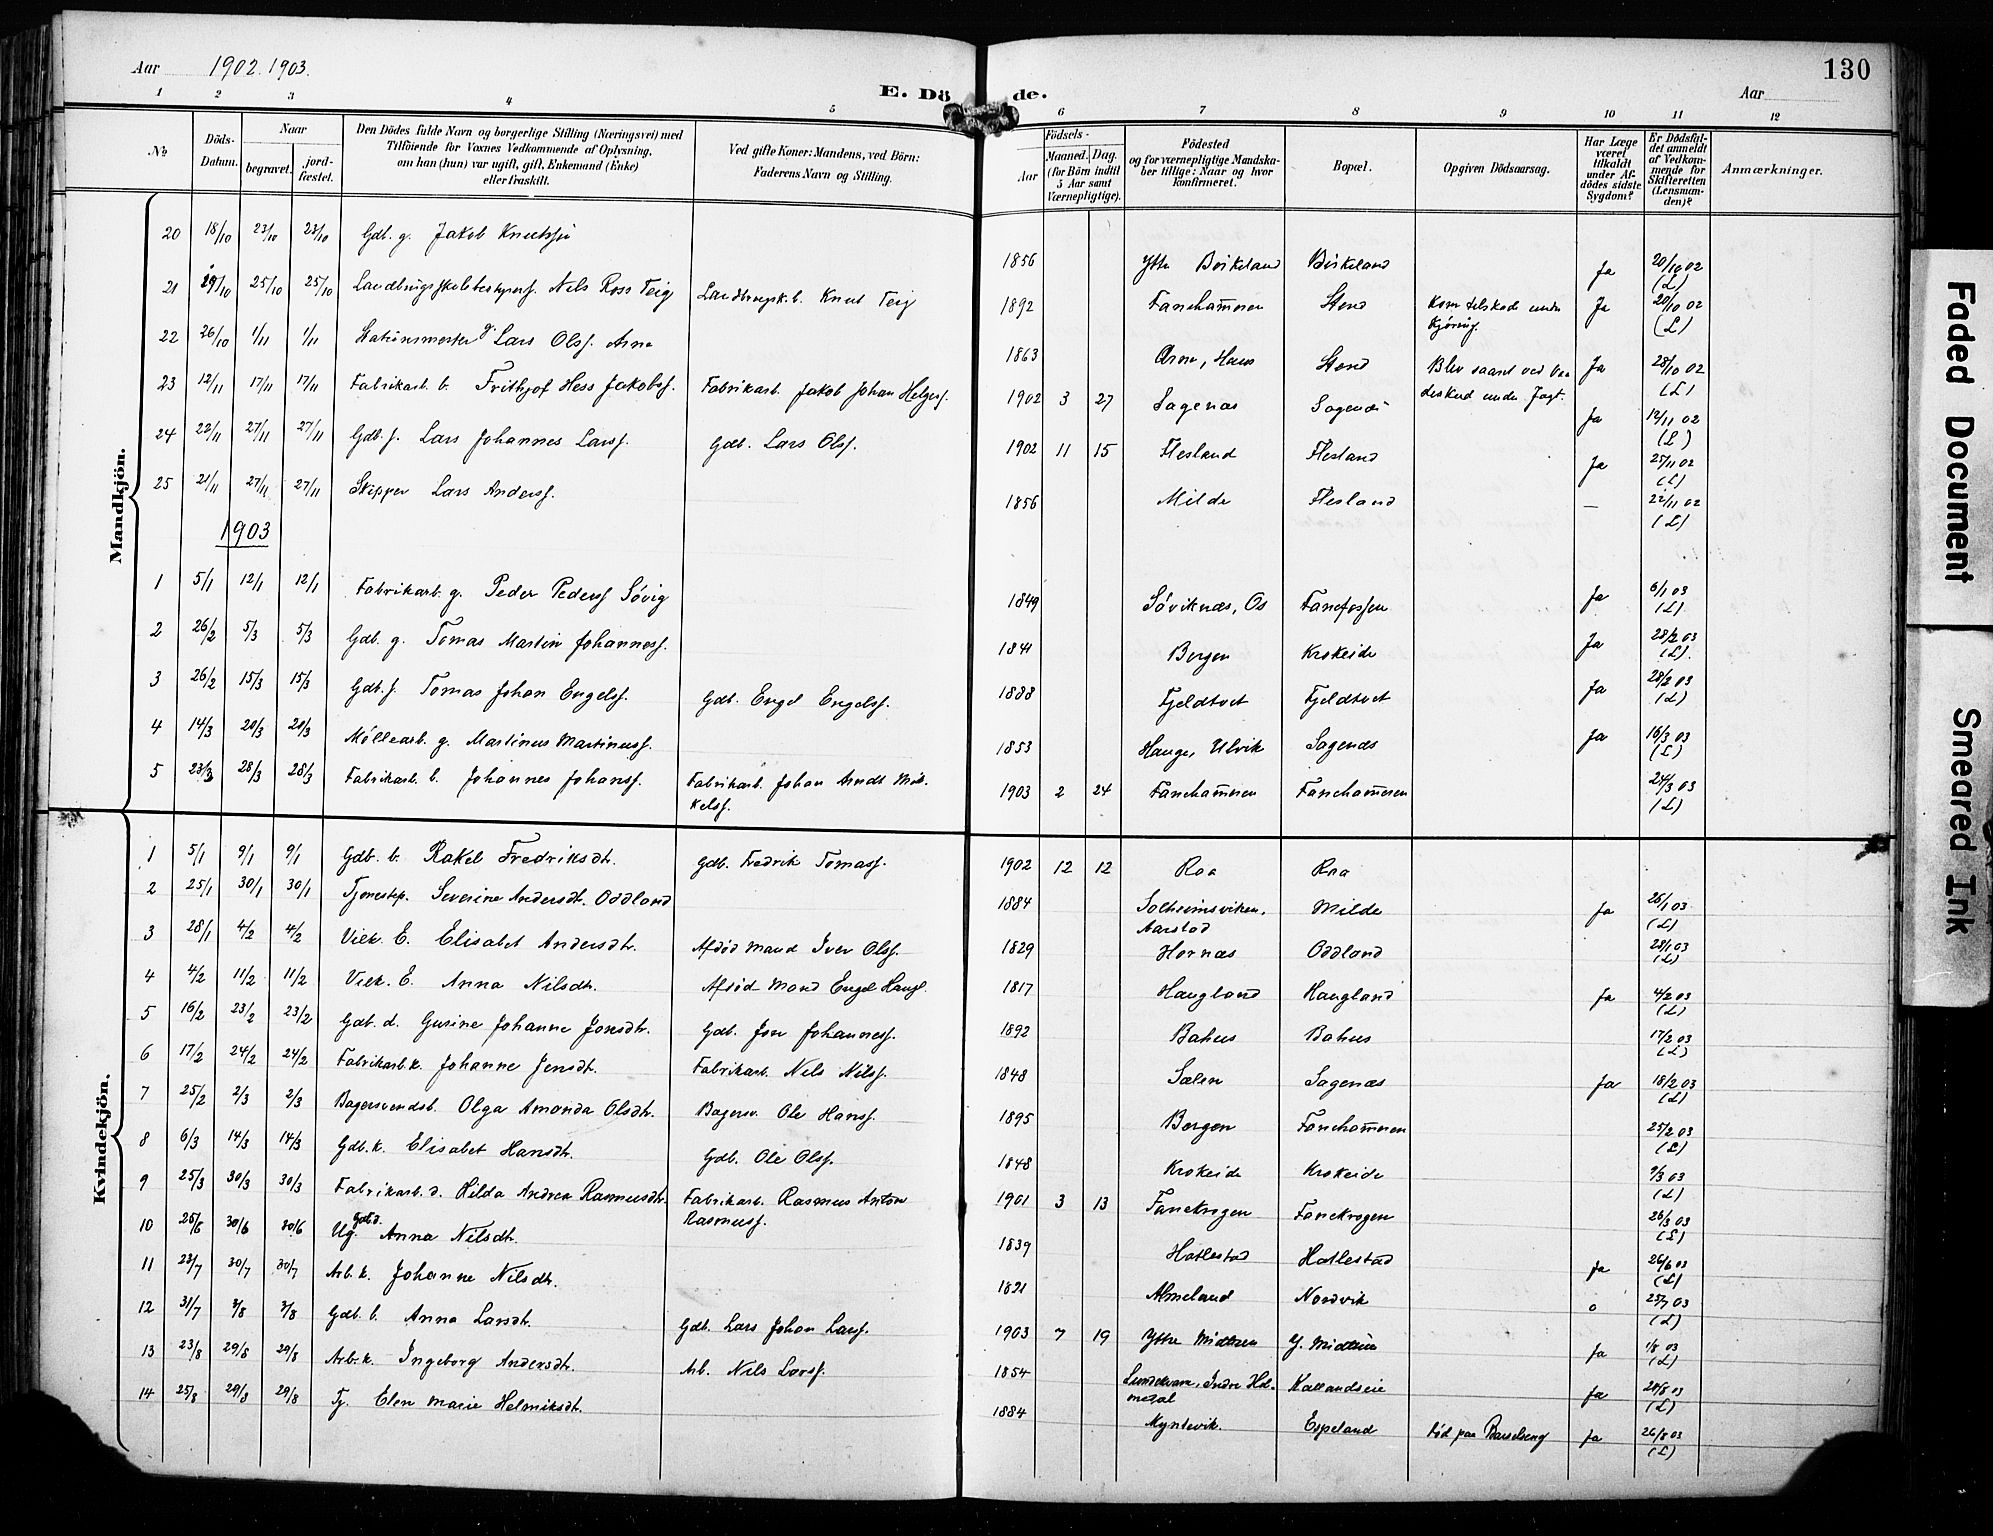 Aar 1902. 1903.
E. Döde.
Aar
130
1 2 3 4 5 6 7 8 9 10 11 12
No
Döds-Datum.
Naar
begravet.
jord-fæstet.
Den Dödes fulde Navn og borgerlige Stilling (Næringsvei) med
Tilföiende for Voxnes Vedkommende af Oplysning,
om han (hun) var ugift, gift, Enkemand (Enke)
eller fraskilt.
Ved gifte Koner: Mandens, ved Börn:
Faderens Navn og Stilling.
Födsels-
Aar
Maaned. Dag.
(for Börn indtil
5 Aar samt
Værnepligtige).
Födested
og for værnepligtige Mandska-
ber tillige: Naar og hvor
konfirmeret.
Bopæl.
Opgiven Dödsaarsag.
Har Læge
været
tilkaldt
under Af-
dödes sidste
Sygdom?
Er Dödsfal-
det anmeldt
af Vedkom-
mende for
Skifteretten
(Lensman-
den)?
Anmærkninger.
Mandkjön.
20 18/10 23/10 23/10 Gdb. g. Jakob Knutssøn 1856 Ytre Birkeland Birkeland Ja 20/10 02 (L)
21 19/10 25/10 25/10 Landbrugsskolebestyrers. Nils Ross Teig Landbrugsk.b. Knut Teig 1892 Fanehammeren Stend Kom tilskade under Kjøring. Ja 20/10 02 (L)
22 26/10 1/11 1/11 Stationsmester g. Lars Olsf. Arna 1863 Arne, Haus Stend Blev saaret ved Vaadeskud under Jagt. Ja 28/10 02 (L)
23 12/11 17/11 17/11 Fabrikarb. b. Frithjof Hess Jakobsf. Fabrikarb. Jakob Johan Helgesf. 1902 3 27 Sagenæs Sagenæs Ja 12/11 02 (L)
24 22/11 27/11 27/11 Gdb. s. Lars Johannes Larsf. Gdb. Lars Olsf. 1902 11 15 Flesland Flesland Ja 25/11 02 (L)
25 21/11 27/11 27/11 Skipper Lars Andersf. 1856 Milde Flesland — 22/11 02 (L)
1903
1 5/1 12/1 12/1 Fabrikarb. g. Peder Pedersf Søvig 1849 Søviknæs, Os Fanefossen Ja 6/1 03 (L)
2 26/2 5/3 5/3 Gdb. g. Tomas Martin Johannesf. 1841 Bergen Krokeide Ja 28/2 03 (L).
3 26/2 15/3 15/3 Gdb. s. Tomas Johan Engelsf. Gdb. Engel Engelsf. 1888 Fjeldtvet Fjeldtvet Ja 28/2 03 (L)
4 14/3 20/3 20/3 Møllearb. g. Martinus Martinusf. 1853 Hauge, Ulvik Sagenæs Ja 16/3 03 (L)
5 23/3 28/3 28/3 Fabrikarb. b. Johannes Johansf. Fabrikarb. Johan Arndt Mikkelsf. 1903 2 24 Fanehammeren Fanehammeren 24/3 03 (L)
Kvindekjön.
1 5/1 9/1 9/1 Gdb. b. Rakel Fredriksdtr. Gdb. Fredrik Tomasf. 1902 12 12 Raa Raa
2 25/1 30/1 30/1 Tjenestep. Severine Andersdt. Oddland 1884 Solheimsviken, Aarstad Milde Ja 26/1 03 (L)
3 28/1 4/2 4/2 Vilk. E. Elisabet Andersdtr. Afdød Mand Iver Olsf. 1829 Hornæs Oddland 28/1 03 (L)
4 4/2 11/2 11/2 Vilk. E. Anna Nilsdtr. Afdød Mand Engel Haugl. 1817 Haugland Haugland Ja 4/2 03 (L)
5 16/2 23/2 23/2 Gdb. d. Gurine Johanne Jonsdtr. Gdb. Jon Johannesf. 1892 Bahus Bahus 17/2 03 (L)
6 17/2 24/2 24/2 Fabrikarb. k. Johanne Jensdtr. Fabrikarb. Nils Nilsf. 1848 Sælen Sagenæs Ja 18/2 03 (L)
7 25/2 2/3 2/3 Bagersvendsb. Olga Amanda Olsdtr. Bagersv. Ole Hansf. 1895 Bergen Fanehammeren 25/2 03 (L)
8 6/3 14/3 14/3 Gdb. k. Elisabet Hansdtr. Gdb. Ole Olsf. 1848 Krokeide Krokeide 9/3 03 (L)
9 25/3 30/3 30/3 Fabrikarb. d. Hilda Andrea Rasmusdtr. Fabrikarb. Rasmus Anton Rasmusf. 1901 3 13 Fanekrogen Fanekrogen 26/3 03 (L)
10 25/6 30/6 30/6 Ug. Gdbd. Anna Nilsdtr. 1839 Hatlestad Hatlestad Ja 26/6 03 (L)
11 23/7 30/7 30/7 Arb. k. Johanne Nilsdtr. 1821 Almeland Nordvik o 23/7 03 (L)
12 31/7 3/8 3/8 Gdb. b. Anna Larsdtr. Gdb. Lars Johan Larsf. 1903 7 19 Ytre Midtun Y. Midtun Ja 1/8 03 (L)
13 23/8 29/8 29/8 Arb. k. Ingeborg Andersdtr. Arb. Nils Larsf. 1854 Indre Holmedal Kallandseie Ja 24/8 03 (L)
14 25/8 29/8 29/8 Tj. Elen Marie Helmiksdtr. 1884 Myntevik. Espeland Død paa Barselseng Ja 26/8 03 (L)
Faded Document
Smeared Ink